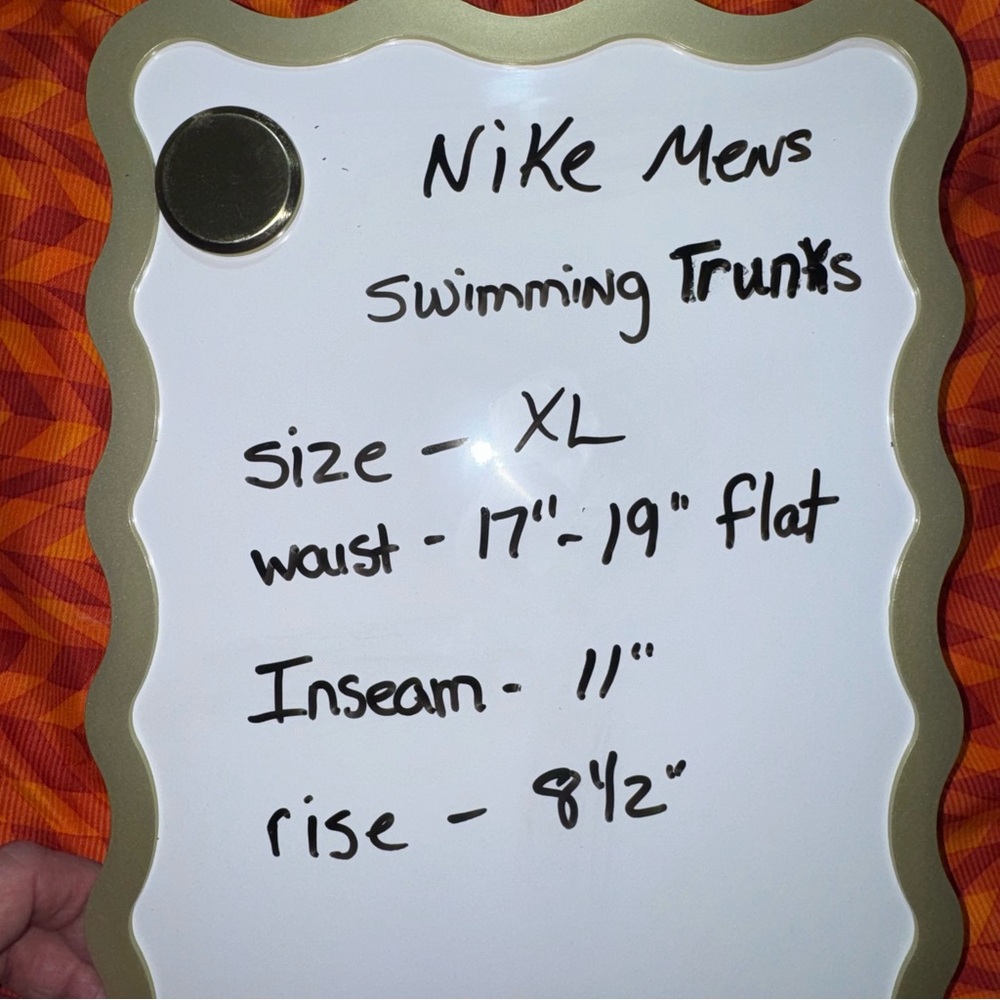 Nike Mens
Swimming Trunks
size - XL
waist - 17"- 19" flat
Inseam - 11"
rise - 8 1/2"